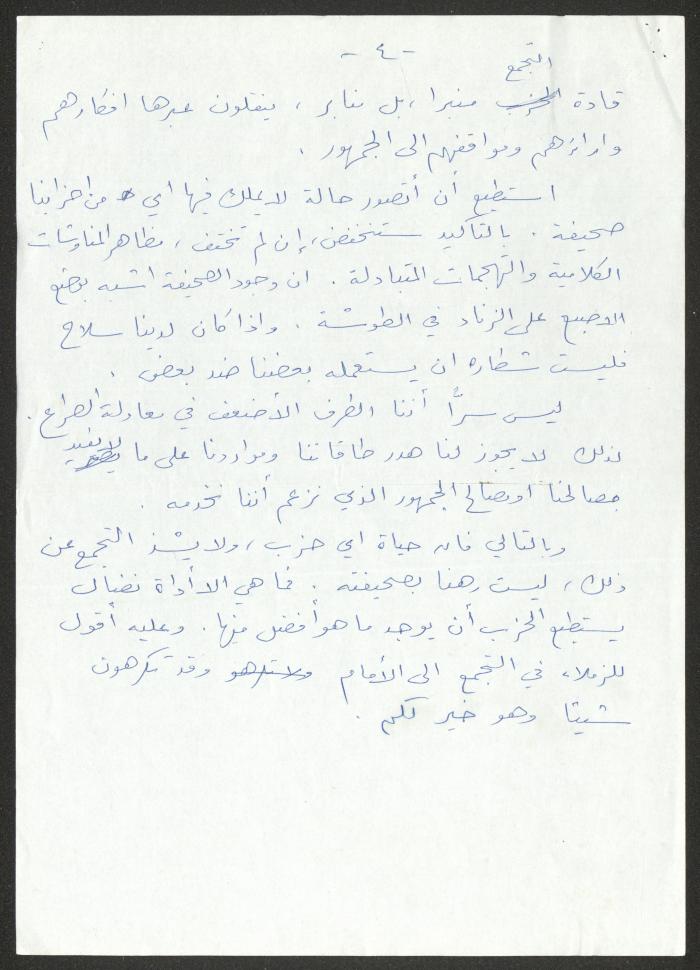 - ٤ -
التجمع
قادة الحزب منبرا ، بل منابر ، ينقلون عبرها افكارهم
واراءهم ومواقفهم الى الجمهور .
استطيع أن أتصور حالة لا يملك فيها اي من احزابنا
صحيفة . بالتأكيد ستنخفض ، إن لم تختف ، مظاهر المناوشات
الكلامية والتهجمات المتبادلة . ان وجود الصحيفة اشبه بوضع
الاصبع على الزناد في الطوشة . واذا كان لدينا سلاح
فليست شطارة ان يستعمله بعضنا ضد بعض .
ليس سرًّا أننا الطرف الأضعف في معادلة الصراع .
لذلك لا يجوز لنا هدر طاقاتنا ومواردنا على ما لا يفيد
مصالحنا او مصالح الجمهور الذي نزعم أننا نخدمه .
وبالتالي فان حياة اي حزب ، ولا يشذ التجمع عن
ذلك ، ليست رهنا بصحيفته . فما هي الا أداة نضال
يستطيع الحزب أن يوجد ما هو أفضل منها . وعليه أقول
للزملاء في التجمع الى الأمام وقد تكرهون
شيئا وهو خير لكم .